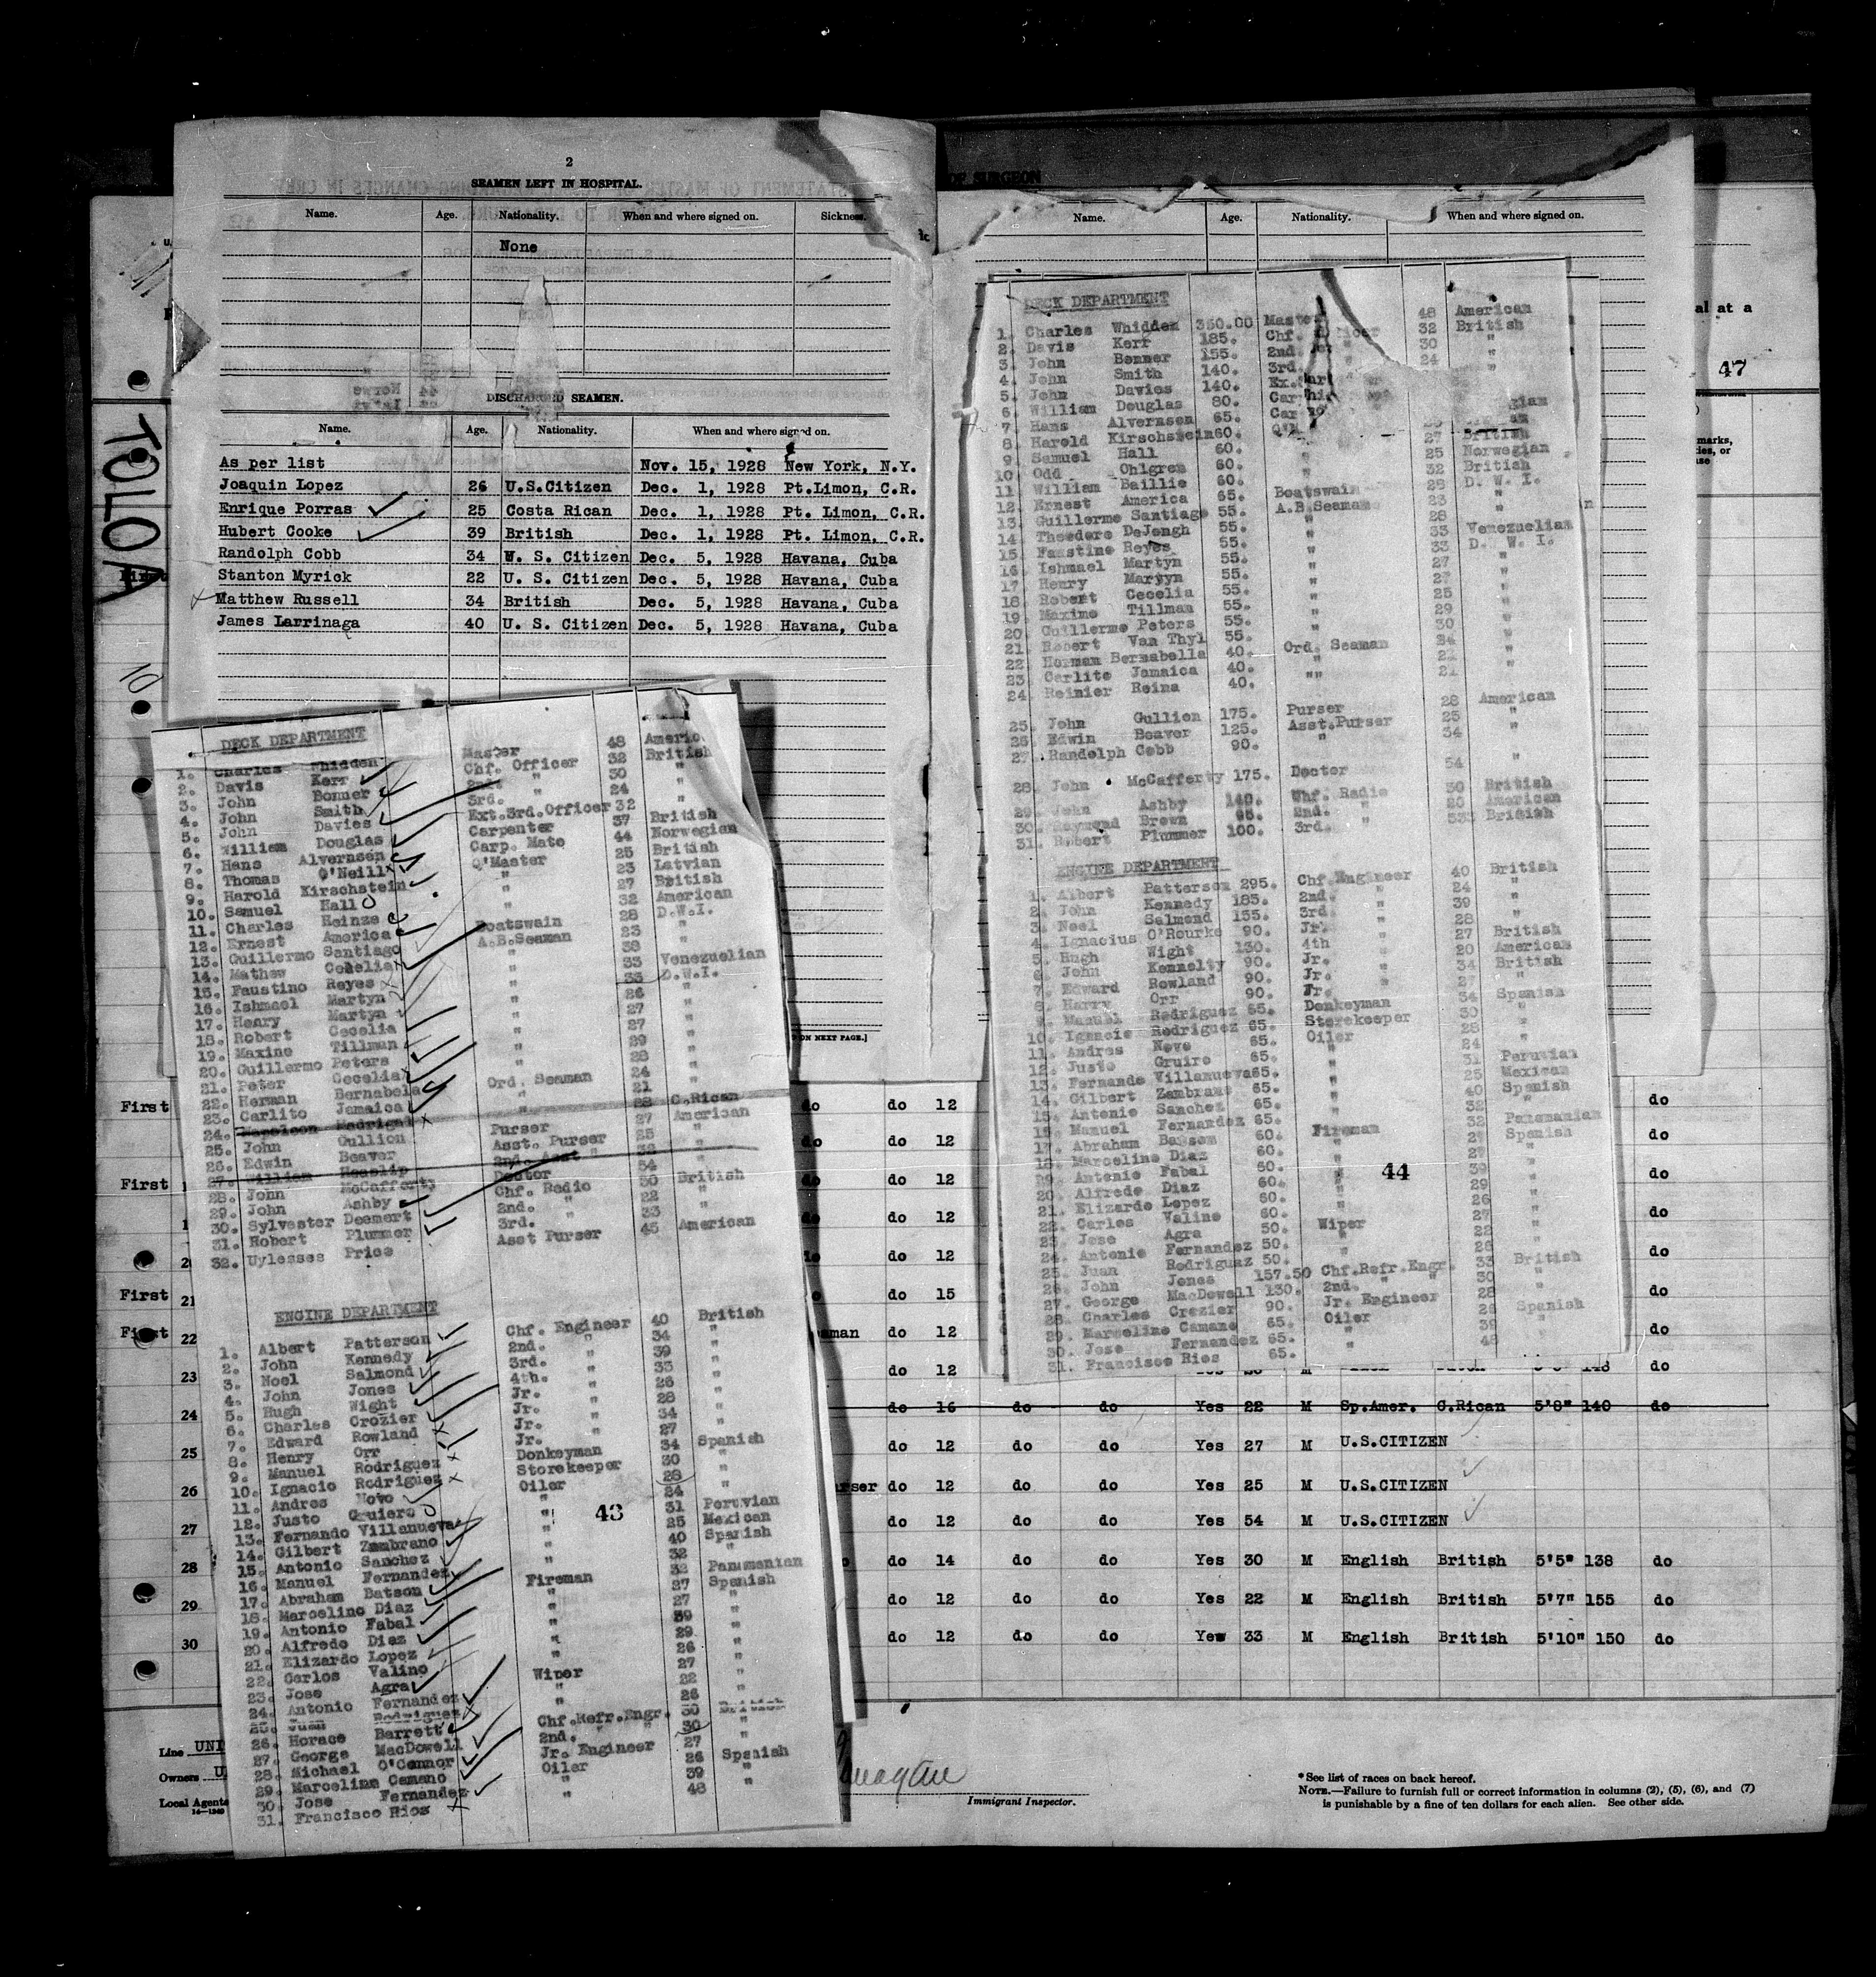 2
SEAMEN LEFT IN HOSPITAL.
Name. Age. Nationality. When and where signed on. Sickness.
None
DISCHARGED SEAMEN.
Name. Age. Nationality. When and where signed on.
As per list Nov. 15, 1928 New York, N.Y.
Joaquin Lopez 26 U.S.Citizen Dec. 1, 1928 Pt.Limon, C.R.
Enrique Porras 25 Costa Rican Dec. 1, 1928 Pt. Limon, C.R.
Hubert Cooke 39 British Dec. 1, 1928 Pt. Limon, C.R.
Randolph Cobb 34 U. S. Citizen Dec. 5, 1928 Havana, Cuba
Stanton Myrick 22 U. S. Citizen Dec. 5, 1928 Havana, Cuba
Matthew Russell 34 British Dec. 5, 1928 Havana, Cuba
James Larrinaga 40 U. S. Citizen Dec. 5, 1928 Havana, Cuba
TOLOA
10
ON NEXT PAGE.]
DECK DEPARTMENT
1. Charles Whidden Master 48
2. Davis Kerr Chf. Officer 32 British
3. John Bonner 2nd. " 30 "
4. John Smith 3rd. " 24 "
5. John Davies Ext.3rd.Officer 32 "
6. William Douglas Carpenter 37 British
7. Hans Alvernsen Carp. Mate 44 Norwegian
8. Thomas O'Neill Q'Master 25 British
9. Harold Kirschstein " 23 Latvian
10. Samuel Hall " 27 British
11. Charles Heinze " 32 American
12. Ernest America Boatswain 28 D.W.I.
13. Guillermo Santiago A.B.Seaman 23 "
14. Mathew Cecelia " 38 "
15. Faustino Reyes " 33 Venezuelian
16. Ishmael Martyn " 33 D.W.I.
17. Henry Martyn " 26 "
18. Robert Cecelia " 27 "
19. Maxino Tillman " 27 "
20. Guillermo Peters " 29 "
21. Peter Cecelia " 28 "
22. Herman Bernabela Ord. Seaman 24 "
23. Carlito Jamaica " 21 "
24. Napoleon Madrigal " 22 C.Rican
25. John Gullion Purser 27 American
26. Edwin Beaver Asst. Purser 25 "
27. William Heaslip 2nd. Asst " 32 "
28. John McCafferty Doctor 54 "
29. John Ashby Chf. Radio 30 British
30. Sylvester Deemert 2nd. " 22 "
31. Robert Plummer 3rd. " 33 "
32. Uylesses Price Asst Purser 45 American
ENGINE DEPARTMENT
1. Albert Patterson Chf. Engineer 40 British
2. John Kennedy 2nd. " 34 "
3. Noel Salmond 3rd. " 39 "
4. John Jones 4th. " 33 "
5. Hugh Wight Jr. " 26 "
6. Charles Crozier Jr. " 28 "
7. Edward Rowland Jr. " 34 "
8. Henry Orr Jr. " 27 "
9. Manuel Rodriguez Donkeyman 34 Spanish
10. Ignacio Rodriguez Storekeeper 30 "
11. Andres Novo Oiler 28 "
12. Justo Gruiero " 24 "
13. Fernando Villanueva " 31 Peruvian
14. Gilbert Zambrano " 25 Mexican
15. Antonio Sanchez " 40 Spanish
16. Manuel Fernandez " 32 "
17. Abraham Batson Fireman 32 Panamanian
18. Marcelino Diaz " 27 Spanish
19. Antonio Fabal " 27 "
20. Alfredo Diaz " 39 "
21. Elizardo Lopez " 29 "
22. Carlos Valino " 26 "
23. Jose Agra Wiper 27 "
24. Antonio Fernandez " 22 "
25. Juan Rodriguez " 26 "
26. Horace Barrett Chf.Refr.Engr. 30 British
27. George MacDowell 2nd. " " 30 "
28. Michael O'Connor Jr. Engineer 27 "
29. Marcelino Camano Oiler 26 Spanish
30. Jose Fernandez " 39 "
31. Francisco Rios " 48 "
43
OF SURGEON
Name. Age. Nationality. When and where signed on.
DECK DEPARTMENT
1. Charles Whidden 350.00 Master 48 American
2. Davis Kerr 185. Chf. 32 British
3. John Bonner 155. 2nd. 30 "
4. John Smith 140. 3rd. 24
5. John Davies 140.
6. William Douglas 80.
7. Hans Alvernsen 65.
8. Harold Kirschstein 60.
9. Samuel Hall 60. 27 British
10. Odd Ohlgren 60. " 25 Norwegian
11. William Baillie 60. " 32 British
12. Ernest America 65. Boatswain 28 D. W. I.
13. Guillermo Santiago 55. A.B.Seaman 23 "
14. Theodore DeJongh 55. " 28
15. Faustino Reyes 55. " 33 Venezuelian
16. Ishmael Martyn 55. " 33 D. W. I.
17. Henry Martyn 55. " 27 "
18. Robert Cecelia 55. " 27 "
19. Maximo Tillman 55. " 25 "
20. Guillermo Peters 55. " 29 "
21. Robert Van Thyl 55. " 30 "
22. Herman Bernabella 40. Ord. Seaman 24 "
23. Carlito Jamaica 40. " 21 "
24. Reinier Reina 40. "" 21 "
25. John Gullion 175. Purser 28 American
26. Edwin Beaver 125. Asst.Purser 25 "
27. Randolph Cobb 90. " 34 "
28. John McCafferty 175. Doctor 54 "
29. John Ashby 140. Chf. Radio 30 British
30. Raymond Brown 2nd. " American
31. Robert Plummer 100. 3rd. " 33 British
ENGINE DEPARTMENT
1. Albert Patterson 295. Chf.Engineer 40 British
2. John Kennedy 185. 2nd. " 24 "
3. Noel Salmond 155. 3rd. " 39 "
4. Ignacius O'Rourke 90. Jr. " 28 "
5. Hugh Wight 130. 4th " 27 British
6. John Kennelty 90. Jr. " 20 American
7. Edward Rowland 90. Jr. " 34 British
8. Harry Orr 90. Jr. " 27 "
9. Manuel Rodriguez 65. Donkeyman 34 Spanish
10. Ignacio Rodriguez 65. Storekeeper 30 "
11. Andres Novo 65. Oiler 28 "
12. Justo Gruiro 65. " 24 "
13. Fernando Villanueva 65. " 31 Peruvian
14. Gilbert Zambrano 65. " 25 Mexican
15. Antonio Sanchez 65. " 40 Spanish
16. Manuel Fernandez 65. " 32 "
17. Abraham Batson 60. Fireman 32 Panamanian
18. Marcelino Diaz 60. " 27 Spanish
19. Antonio Fabal 60. " 27 "
20. Alfredo Diaz 60. " 39 "
21. Elizardo Lopez 60. " 29 "
22. Carlos Valino 60. " 26 "
23. Jose Agra 50. Wiper 27 "
24. Antonio Fernandez 50. " 22 "
25. Juan Rodriguaz 50. " 26 "
26. John Jones 157.50 Chf.Refr.Engr. 33 British
27. George MacDowell 130. 2nd. " " 30 "
28. Charles Crozier 90. Jr. Engineer 28 "
29. Marcelino Camano 65. Oiler 26 Spanish
30. Jose Fernandez 65. " 39 "
31. Francisco Rios 65. " 48 "
44
al at a
47
First do do 12 do
do do 12 do
First do do 12 do
do do 12 do
do 12 do
First 21 do 15 do
First 22 do 12 do
23 do 12 do
24 do 16 do do Yes 22 M Sp.Amer. C.Rican 5'8" 140 do
25 do 12 do do Yes 27 M U.S.CITIZEN
26 do 12 do do Yes 25 M U.S.CITIZEN
27 do 12 do do Yes 54 M U.S.CITIZEN
28 do 14 do do Yes 30 M English British 5'5" 138 do
29 do 12 do do Yes 22 M English British 5'7" 155 do
30 do 12 do do Yes 33 M English British 5'10" 150 do
Line UNI
Owners U
Local Agents
Immigrant Inspector.
*See list of races on back hereof.
NOTE.—Failure to furnish full or correct information in columns (2), (5), (6), and (7)
is punishable by a fine of ten dollars for each alien. See other side.